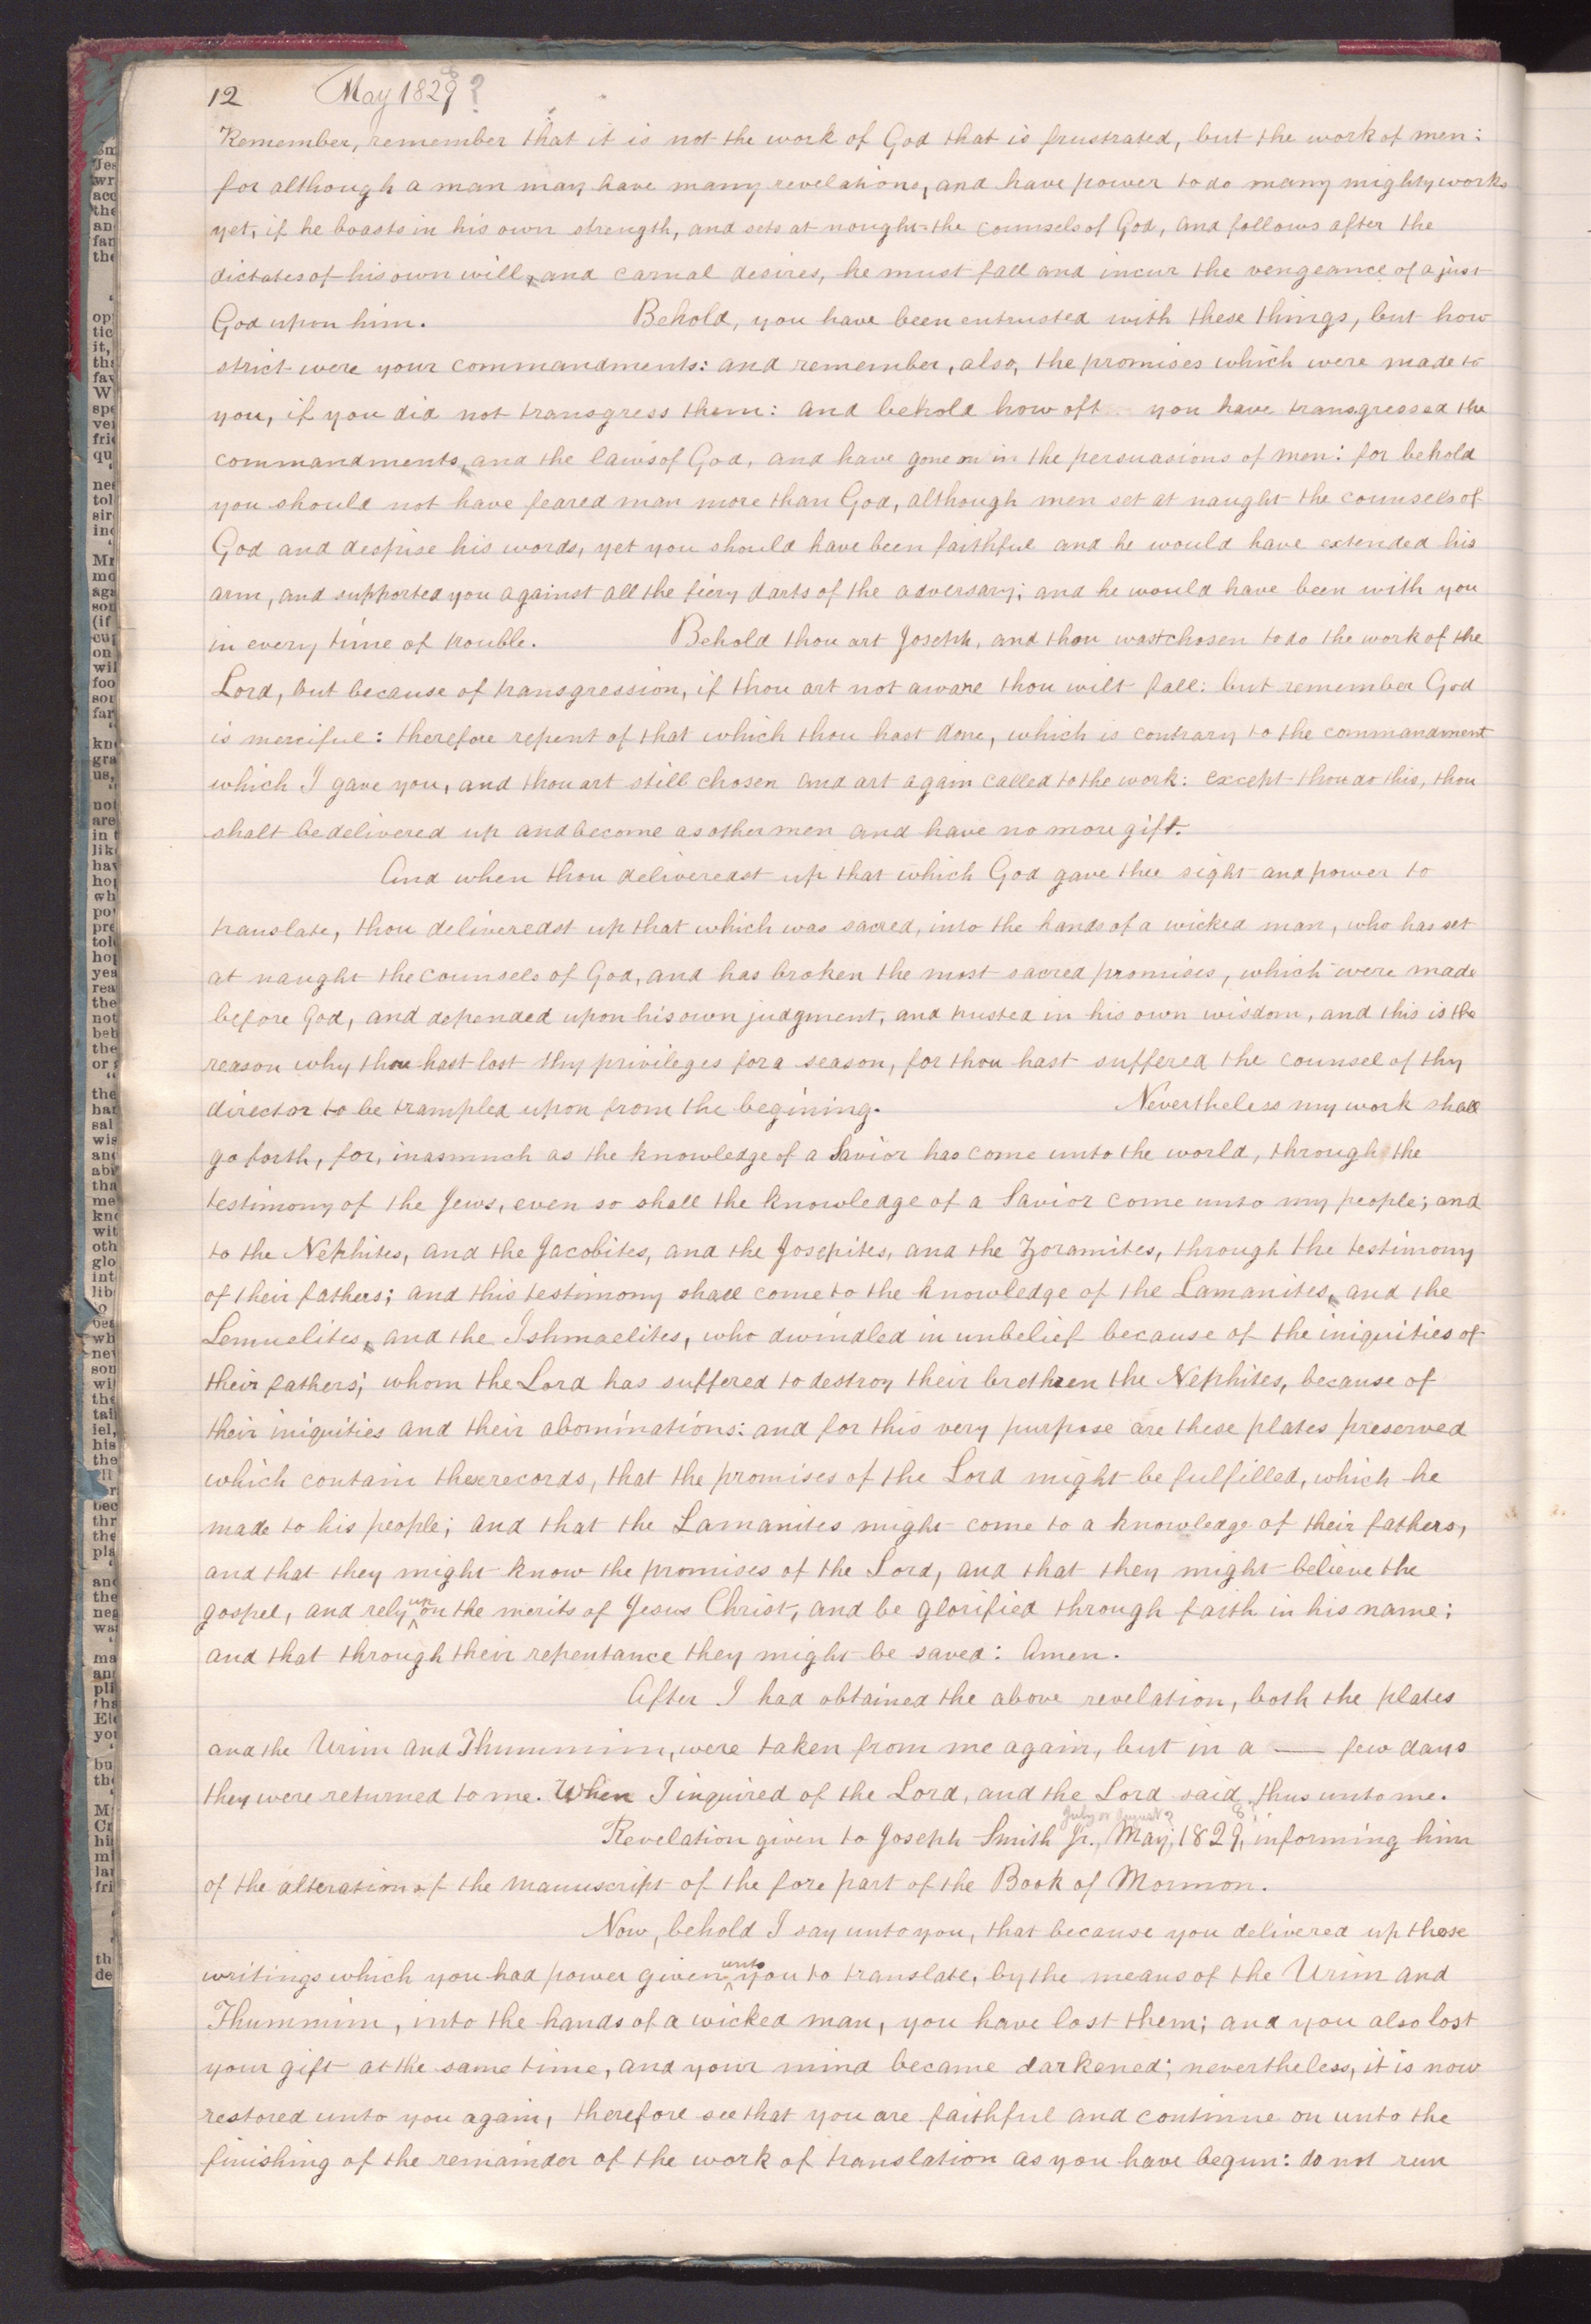 12 May 1829?
Remember, remember that it is not the work of God that is frustrated, but the work of men:
for although a man may have many revelations, and have power to do many mighty works
yet, if he boasts in his own strength, and sets at nought the counsels of God, and follows after the
dictates of his own will, and carnal desires, he must fall and incur the vengeance of a just
God upon him. Behold, you have been entrusted with these things, but how
strict were your commandments: and remember, also, the promises which were made to
you, if you did not transgress them: and behold how oft you have transgressed the
commandments, and the laws of God, and have gone on in the persuasions of men: for behold
you should not have feared man more than God, although men set at naught the counsels of
God and despise his words, yet you should have been faithful and he would have extended his
arm, and supported you against all the fiery darts of the adversary; and he would have been with you
in every time of trouble. Behold thou art Joseph, and thou wast chosen to do the work of the
Lord, but because of transgression, if thou art not aware thou wilt fall: but remember God
is merciful: therefore repent of that which thou hast done, which is contrary to the commandment
which I gave you, and thou art still chosen and art again called to the work: except thou do this, thou
shalt be delivered up and become as other men and have no more gift.
And when thou deliveredst up that which God gave thee sight and power to
translate, thou deliveredst up that which was sacred, into the hands of a wicked man, who has set
at naught the counsels of God, and has broken the most sacred promises, which were made
before God, and depended upon his own judgment, and trusted in his own wisdom, and this is the
reason why thou hast lost thy privileges for a season, for thou hast suffered the counsel of thy
director to be trampled upon from the begining. Nevertheless my work shall
go forth, for, inasmuch as the knowledge of a Savior has come unto the world, through the
testimony of the Jews, even so shall the knowledge of a Savior come unto my people; and
to the Nephites, and the Jacobites, and the Josepites, and the Zoramites, through the testimony
of their fathers; and this testimony shall come to the knowledge of the Lamanites, and the
Lemuelites, and the Ishmaelites, who dwindled in unbelief because of the iniquities of
their fathers; whom the Lord has suffered to destroy their brethren the Nephites, because of
their iniquities and their abominations: and for this very purpose are these plates preserved
which contain these records, that the promises of the Lord might be fulfilled, which he
made to his people; and that the Lamanites might come to a knowledge of their fathers,
and that they might know the promises of the Lord, and that they might believe the
gospel, and rely upon the merits of Jesus Christ, and be glorified through faith in his name;
and that through their repentance they might be saved: Amen.
After I had obtained the above revelation, both the plates
and the Urim and Thummim, were taken from me again, but in a — few days
they were returned to me. When I inquired of the Lord, and the Lord said thus unto me.
July or August?
Revelation given to Joseph Smith Jr., May, 1829, informing him
of the alteration of the manuscript of the fore part of the Book of Mormon.
Now, behold I say unto you, that because you delivered up those
writings which you had power given unto you to translate, by the means of the Urim and
Thummim, into the hands of a wicked man, you have lost them; and you also lost
your gift at the same time, and your mind became darkened; nevertheless, it is now
restored unto you again, therefore see that you are faithful and continue on unto the
finishing of the remainder of the work of translation as you have begun: do not run